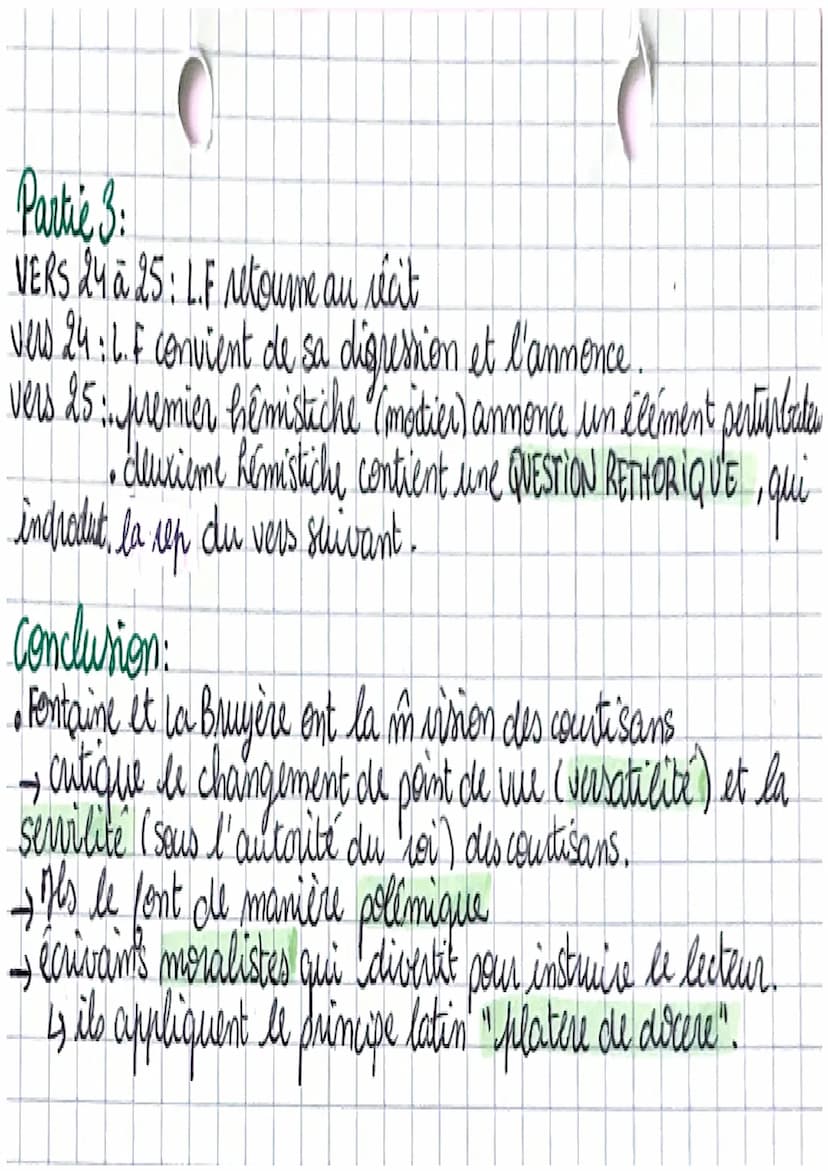 Partie 3:
VERS 24 à 25 : L.F retourne au récit
vers 24 : L.F convient de sa digression et l'annonce.
vers 25 : . premier hémistiche (moitier) annonce un élément perturbateu
. deuxieme hémistiche contient une QUESTION RETHORIQUE, qui
indroduit la rep du vers suivant.
Conclusion:
. Fontaine et La Bruyère ont la m̂ vision des courtisans
→ critique le changement de point de vue (versatilité) et la
servilité (sous l'autorité du roi) des courtisans.
→ Ils le font de manière polémique
→ écrivants moralistes qui divertit pour instruire le lecteur.
↳ ils appliquent le principe latin "platere de docere".